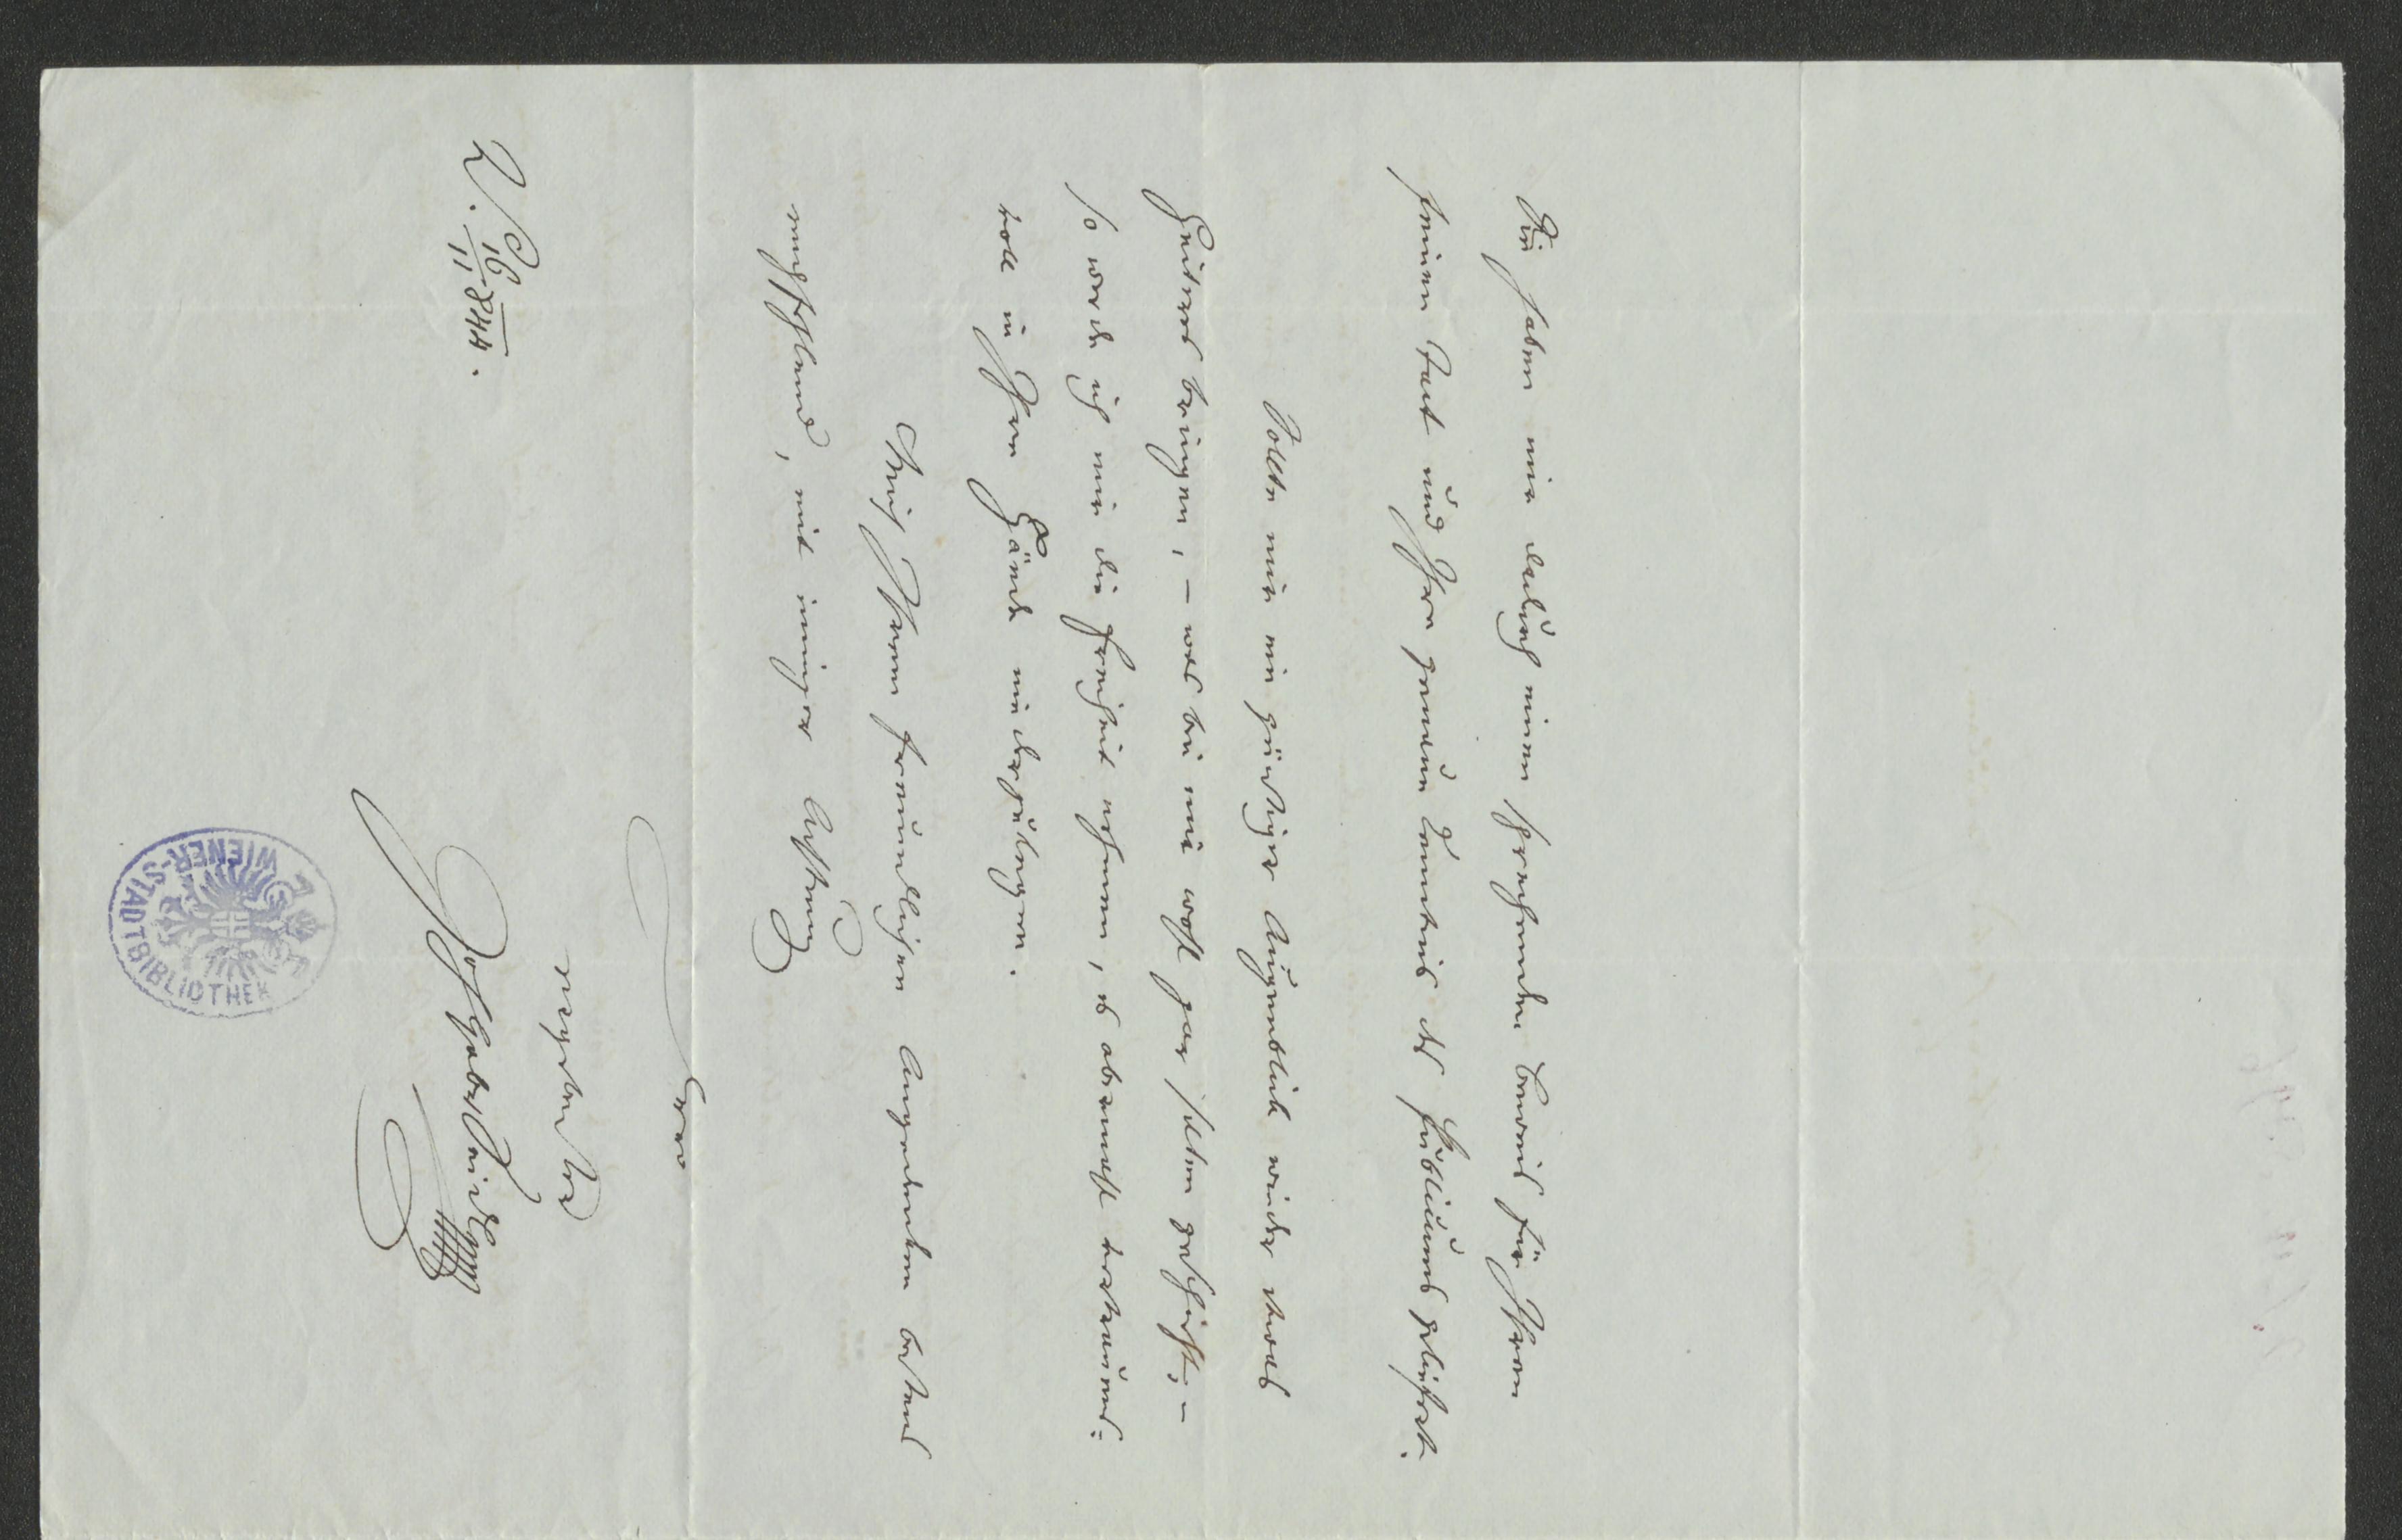 Sie haben mir dadurch einen sprechenden Beweis für Ihren
feinen Takt und Ihre genaue Kenntnis des Publikums geliefert.
Sollte mir ein günstiger Augenblick wieder etwas
Heiteres bringen, – was bei mir wohl gar selten geschieht, –
so werde ich mir die Freiheit nehmen, es abermals vertrauens=
voll in Ihre Hände niederzulegen.
Mich Ihrem freundlichen Angedenken bestens
empfehlend, mit inniger Achtung
Ihr
ergebenster
Joh. Gabr. Seidl
16/11 844.
WIENER-STADTBIBLIOTHEK